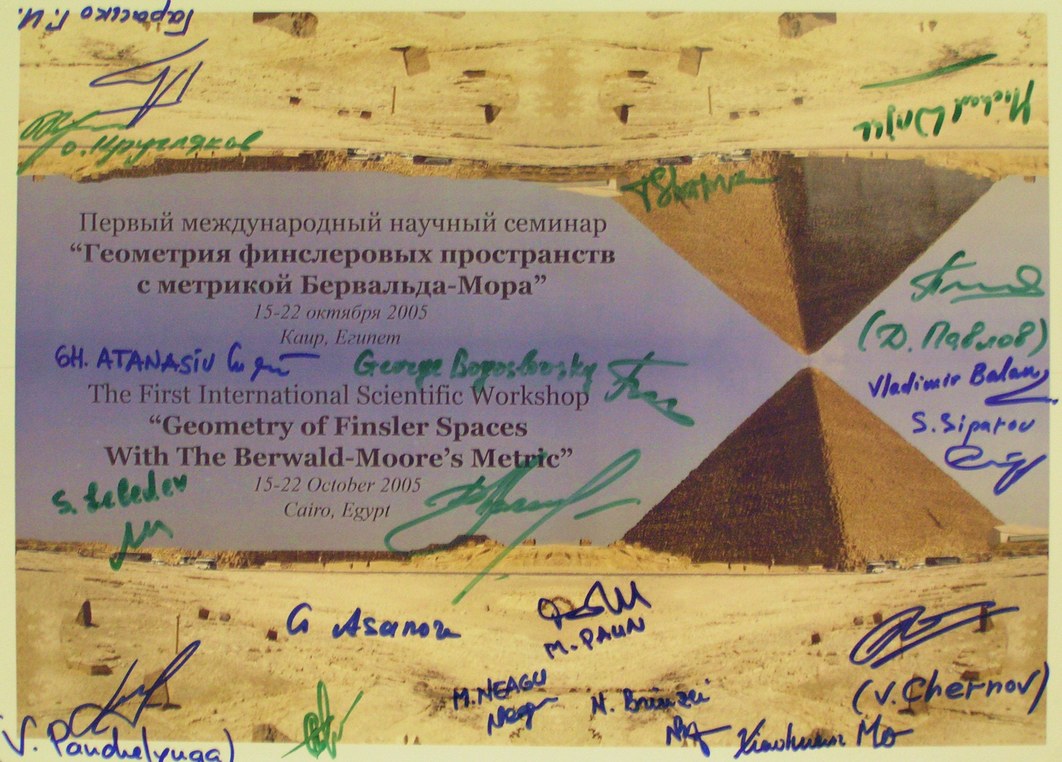 Гарасько Г.И.
О. Кругляков
Первый международный научный семинар
“Геометрия финслеровых пространств
с метрикой Бервальда-Мора”
15-22 октября 2005
Каир, Египет
(Д. Павлов)
GH. ATANASIU
George Bogoslovsky
Vladimir Balan
The First International Scientific Workshop
S. Siparov
“Geometry of Finsler Spaces
With The Berwald-Moore’s Metric”
15-22 October 2005
S. Lebedev
Cairo, Egypt
G Asanov
M. PAUN
M. NEAGU
N. Brinzei
(V. Chernov)
V. Panchelyuga)
Xiaohuan Mo